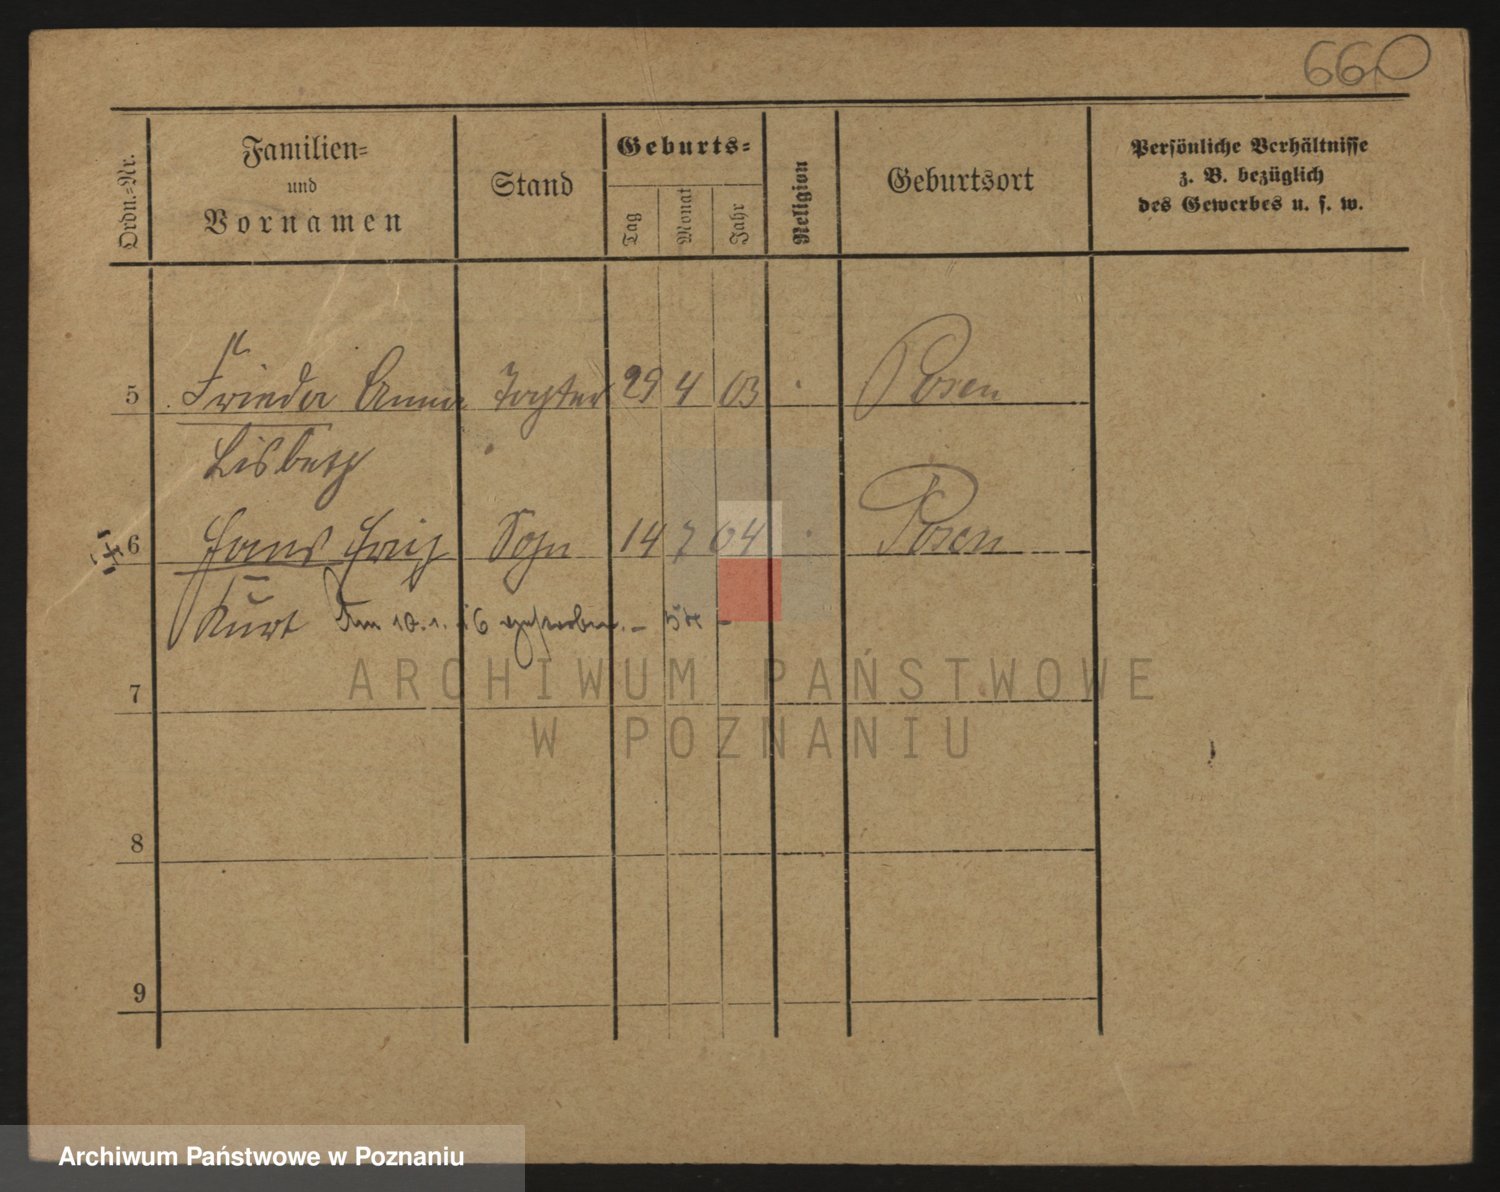 660
Ordn.=Nr.
Familien=
und
Vornamen
Stand
Geburts=
Tag
Monat
Jahr
Religion
Geburtsort
Persönliche Verhältnisse
z. B. bezüglich
des Gewerbes u. s. w.
5 Frieda Anna Tochter 29 4 03 Posen
Lisbeth
6 Hans Erich Sohn 14 7 04 Posen
Kurt Am 10.1.16 gestorben. –
7
ARCHIWUM PAŃSTWOWE
W POZNANIU
8
9
Archiwum Państwowe w Poznaniu